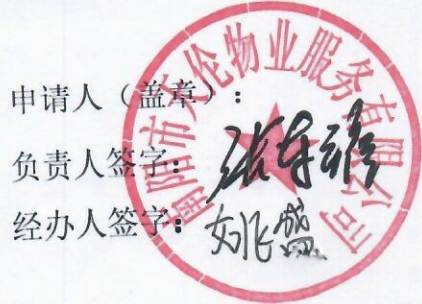 申请人（盖章）：
负责人签字：
经办人签字：姚盛
市天伦物业服务有限公司